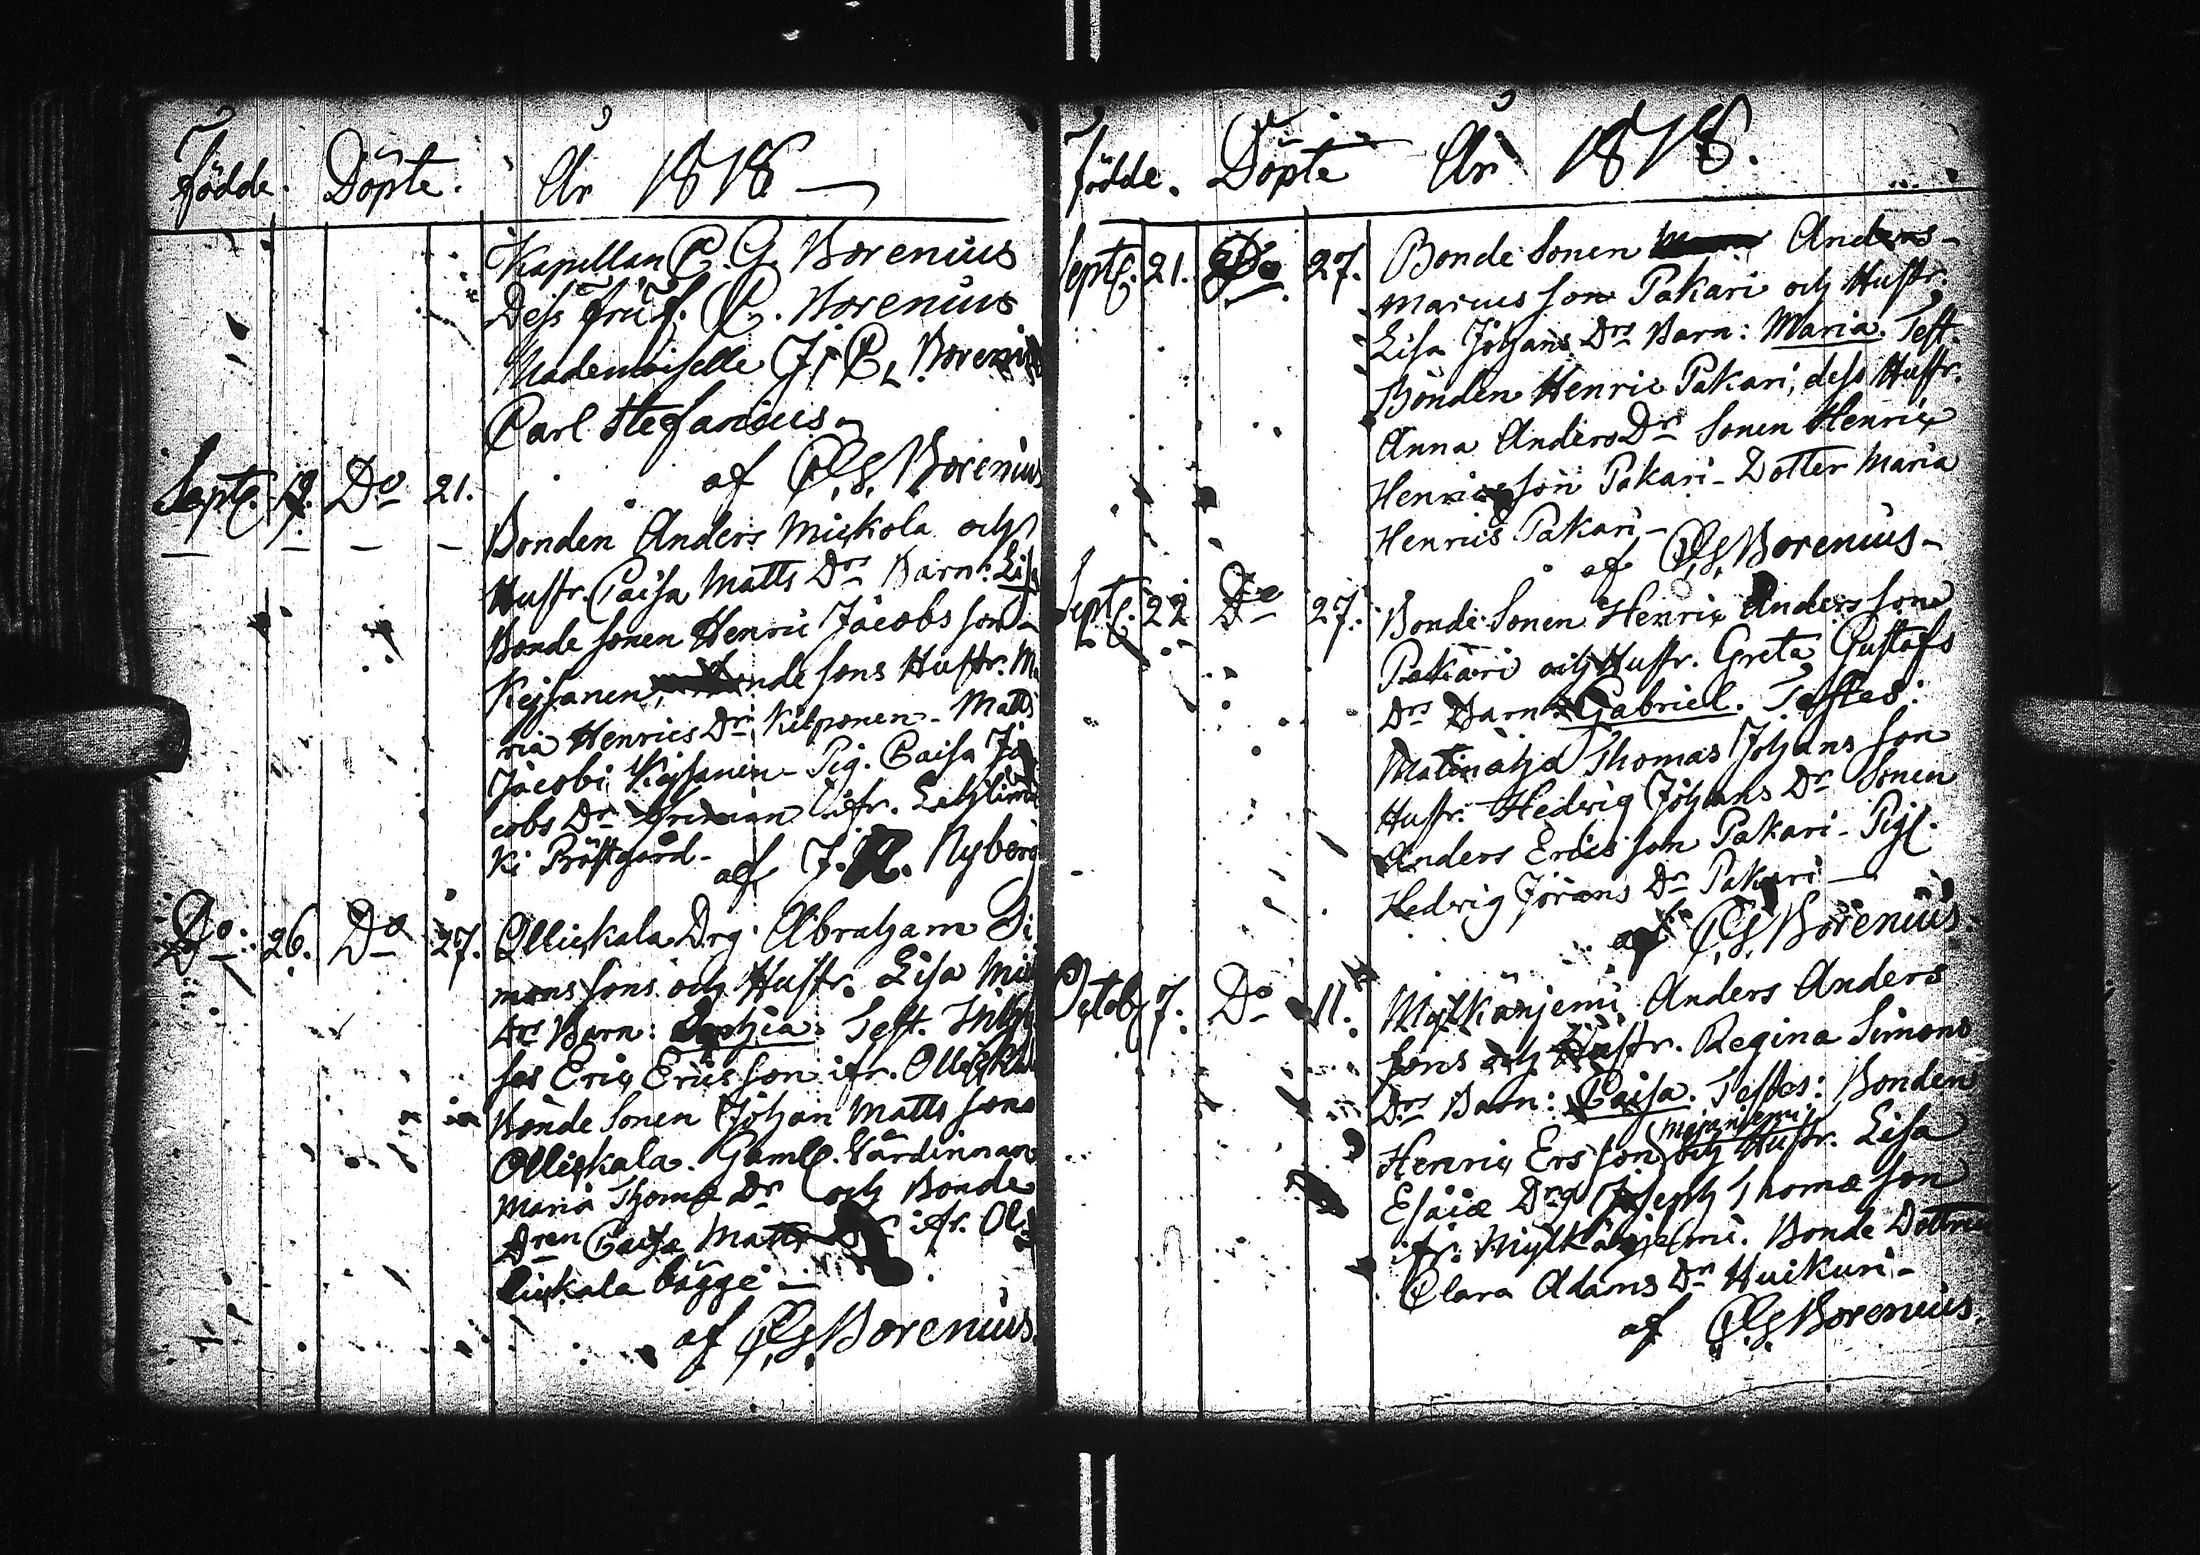 Födde. Döpte. År 1818
Kapellan C. G. Borenius
Dess Fru F. C. Borenius
Mademoiselle J. C. Boreni
Carl Stefanius
af C. G. Borenius
Septb. 19. Do 21.
Bonden Anders Mickola och
Hustr. Caisa Matts Drs Barn: Lisa
Bonde sonen Henric Jacobs son
Keisanen, nde sons Hustr. Ma
ria Henrics Dr Kilponen - Matts
Jacobi Keisanen - Pig. Caisa Ja
cobs Dr ifr.
ki Pröstgård.
af J. R. Nyberg
Do 26. Do 27. Ollickala Drg. Abraham Si
mons sons och Hustr. Lisa
Drs Barn: Sophia. Test. Inhy
ses Eric Erics son ifr. Ollickala
Bonde Sonen Johan Matts sons
Ollickala. Gaml. Värdinnan
Maria Thomæ Dr och Bonde
Dren Caisa Matts ifr. Ol
lickala bägge
af C. G. Borenius.
Födde. Döpte År 1818.
Septb. 21. Do 27. Bonde Sonen Anders
Marcus son Pakari och Hustr.
Lisa Johans Drs Barn: Maria. Test.
Bonden Henric Pakari, dess Hustr.
Anna Anders Dr Sonen Henric
Henrics son Pakari - Dotter Maria
Henrics Pakari -
af C. G. Borenius -
Septb. 22 Do 27. Bonde Sonen Henric Anders son
Pakari och Hustr. Greta Gustafs
Drs Barn: Gabriel. Testes:
Thomas Johans son
Hustr. Hedvig Johans Dr Sonen
Anders Erics son Pakari - Pig.
Hedvig Jörans Dr Pakari
af C. G. Borenius.
Octob. 7. Do 11. Myltkänjemi Anders Anders
sons och Hustr. Regina Simons
Drs Barn: Caisa. Testes: Bonden
Henric Ers son och Hustr. Lisa
Esaiæ Dr Joseph Thomæ son
ifr. Myltkänjemi. Bonde Dottren
Clara Adams Dr Huikuri -
af C. G. Borenius.